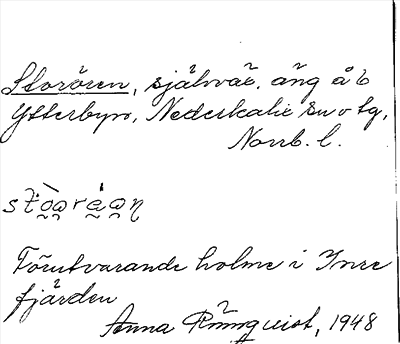 Storören, självär. äng å b
Ytterbyn, Nederkalix sn o tg,
Norrb. l.
Förutvarande holme i Inre
fjärden
Anna Rönnquist, 1948